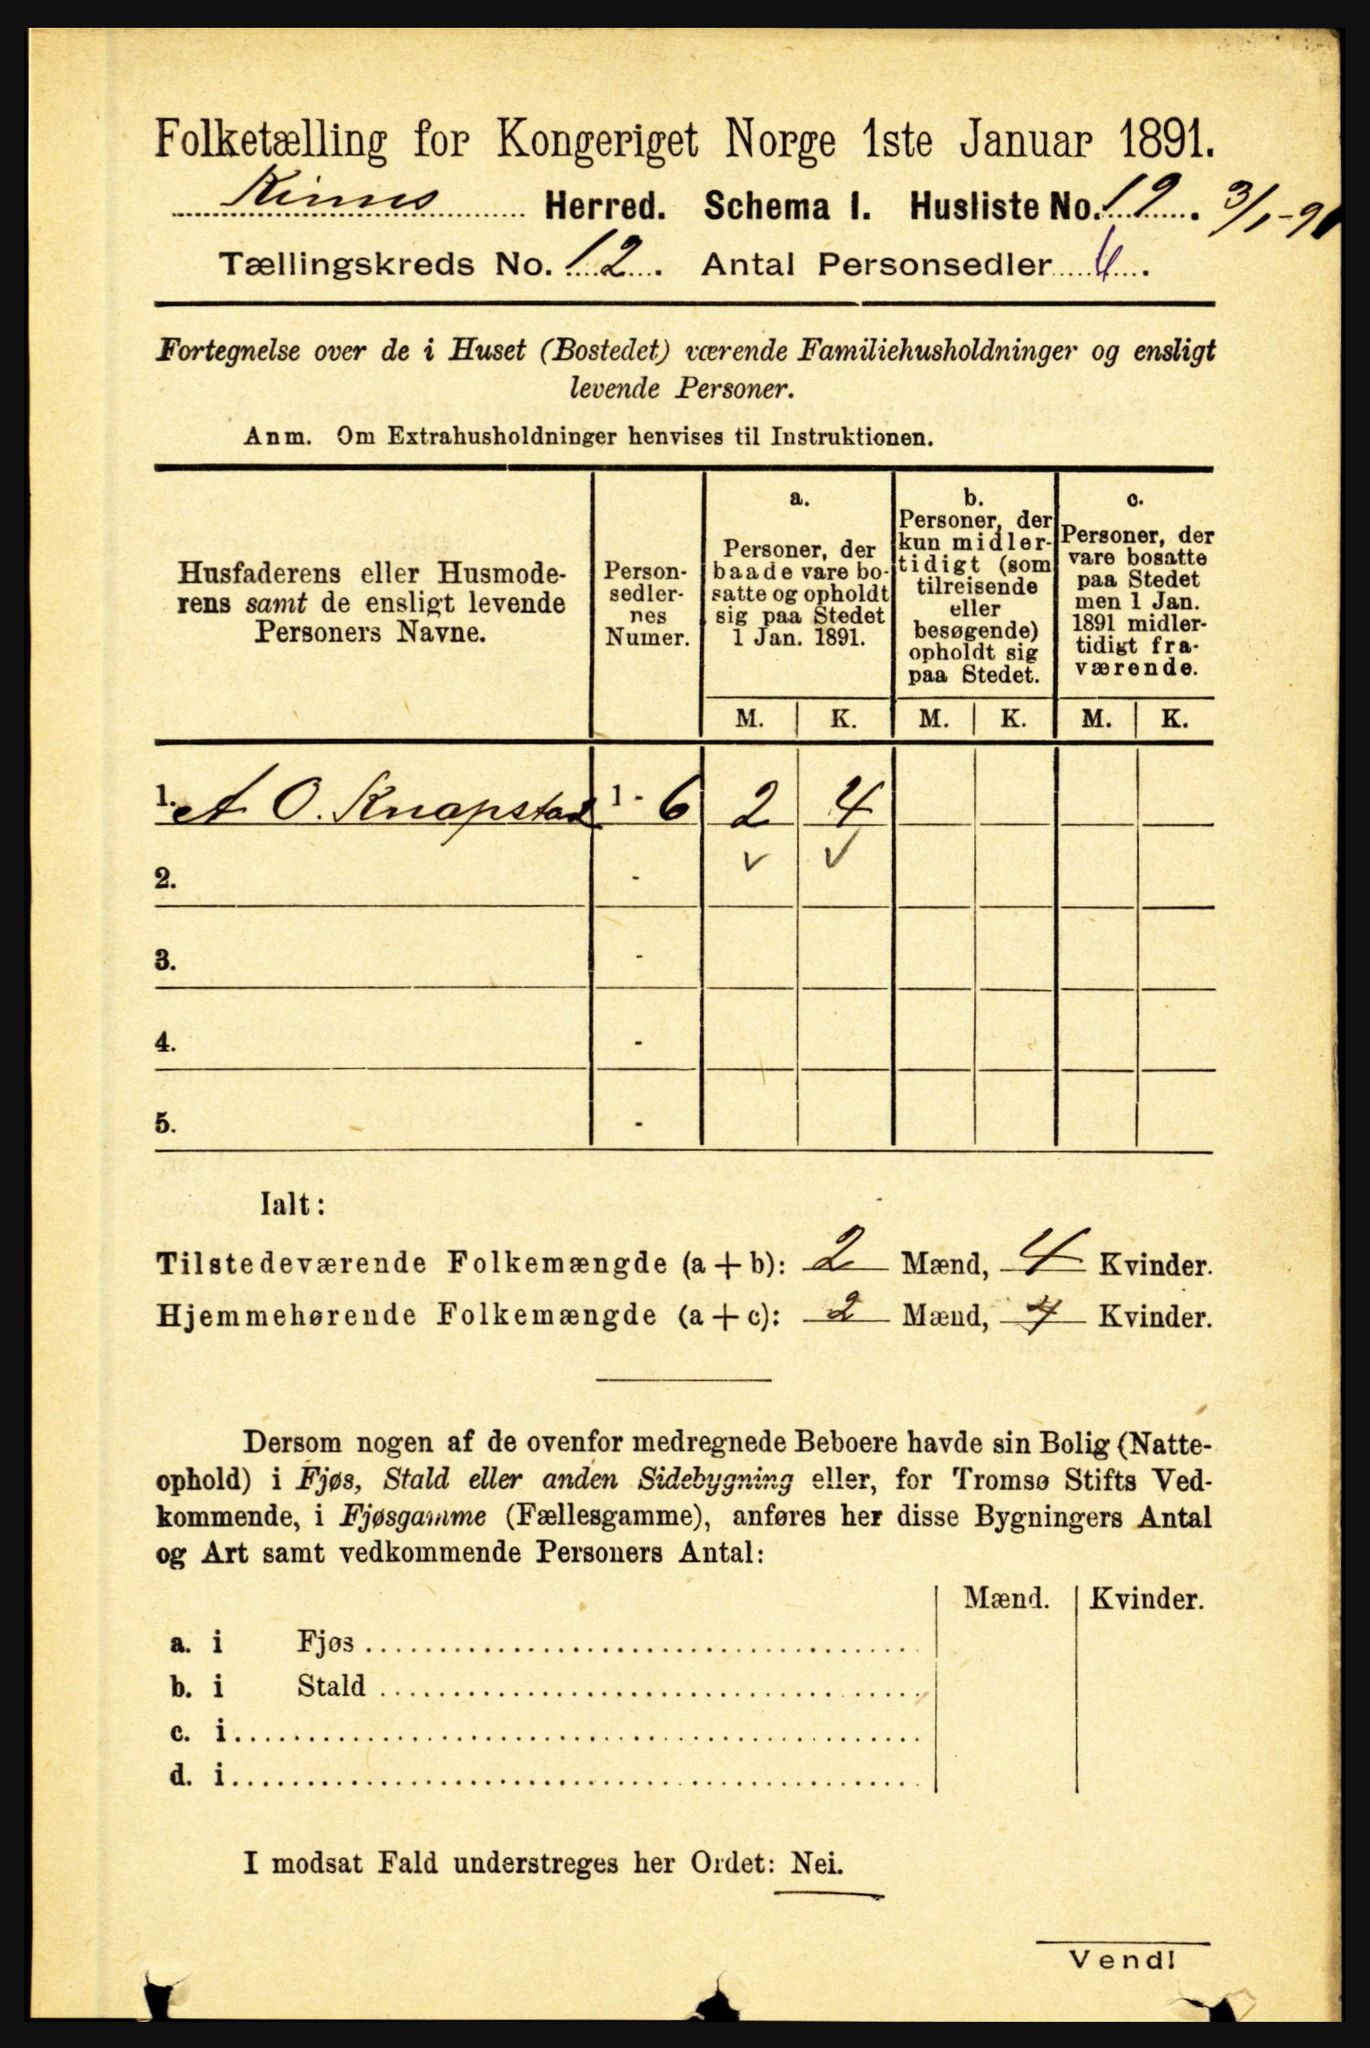 Folketælling for Kongeriget Norge 1ste Januar 1891.
Kinns Herred. Schema I. Husliste No. 19. 3/1-91
Tællingskreds No. 12. Antal Personsedler 6.
Fortegnelse over de i Huset (Bostedet) værende Familiehusholdninger og ensligt
levende Personer.
Anm. Om Extrahusholdninger henvises til Instruktionen.
Husfaderens eller Husmode-
rens samt de ensligt levende
Personers Navne.
Person-
sedler-
nes
Numer.
a.
Personer, der
baade vare bo-
satte og opholdt
sig paa Stedet
1 Jan. 1891.
b.
Personer, der
kun midler-
tidigt (som
tilreisende
eller
besøgende)
opholdt sig
paa Stedet.
c.
Personer, der
vare bosatte
paa Stedet
men 1 Jan.
1891 midler-
tidigt fra-
værende.
M. K. M. K. M. K.
1. A O. Knapstad 1 - 6 2 4
2. - ✓ ✓
3. -
4. -
5. -
Ialt:
Tilstedeværende Folkemængde (a + b): 2 Mænd, 4 Kvinder.
Hjemmehørende Folkemængde (a + c): 2 Mænd, 4 Kvinder.
Dersom nogen af de ovenfor medregnede Beboere havde sin Bolig (Natte-
ophold) i Fjøs, Stald eller anden Sidebygning eller, for Tromsø Stifts Ved-
kommende, i Fjøsgamme (Fællesgamme), anføres her disse Bygningers Antal
og Art samt vedkommende Personers Antal:
Mænd. Kvinder.
a. i Fjøs
b. i Stald
c. i
d. i
I modsat Fald understreges her Ordet: Nei.
Vend!